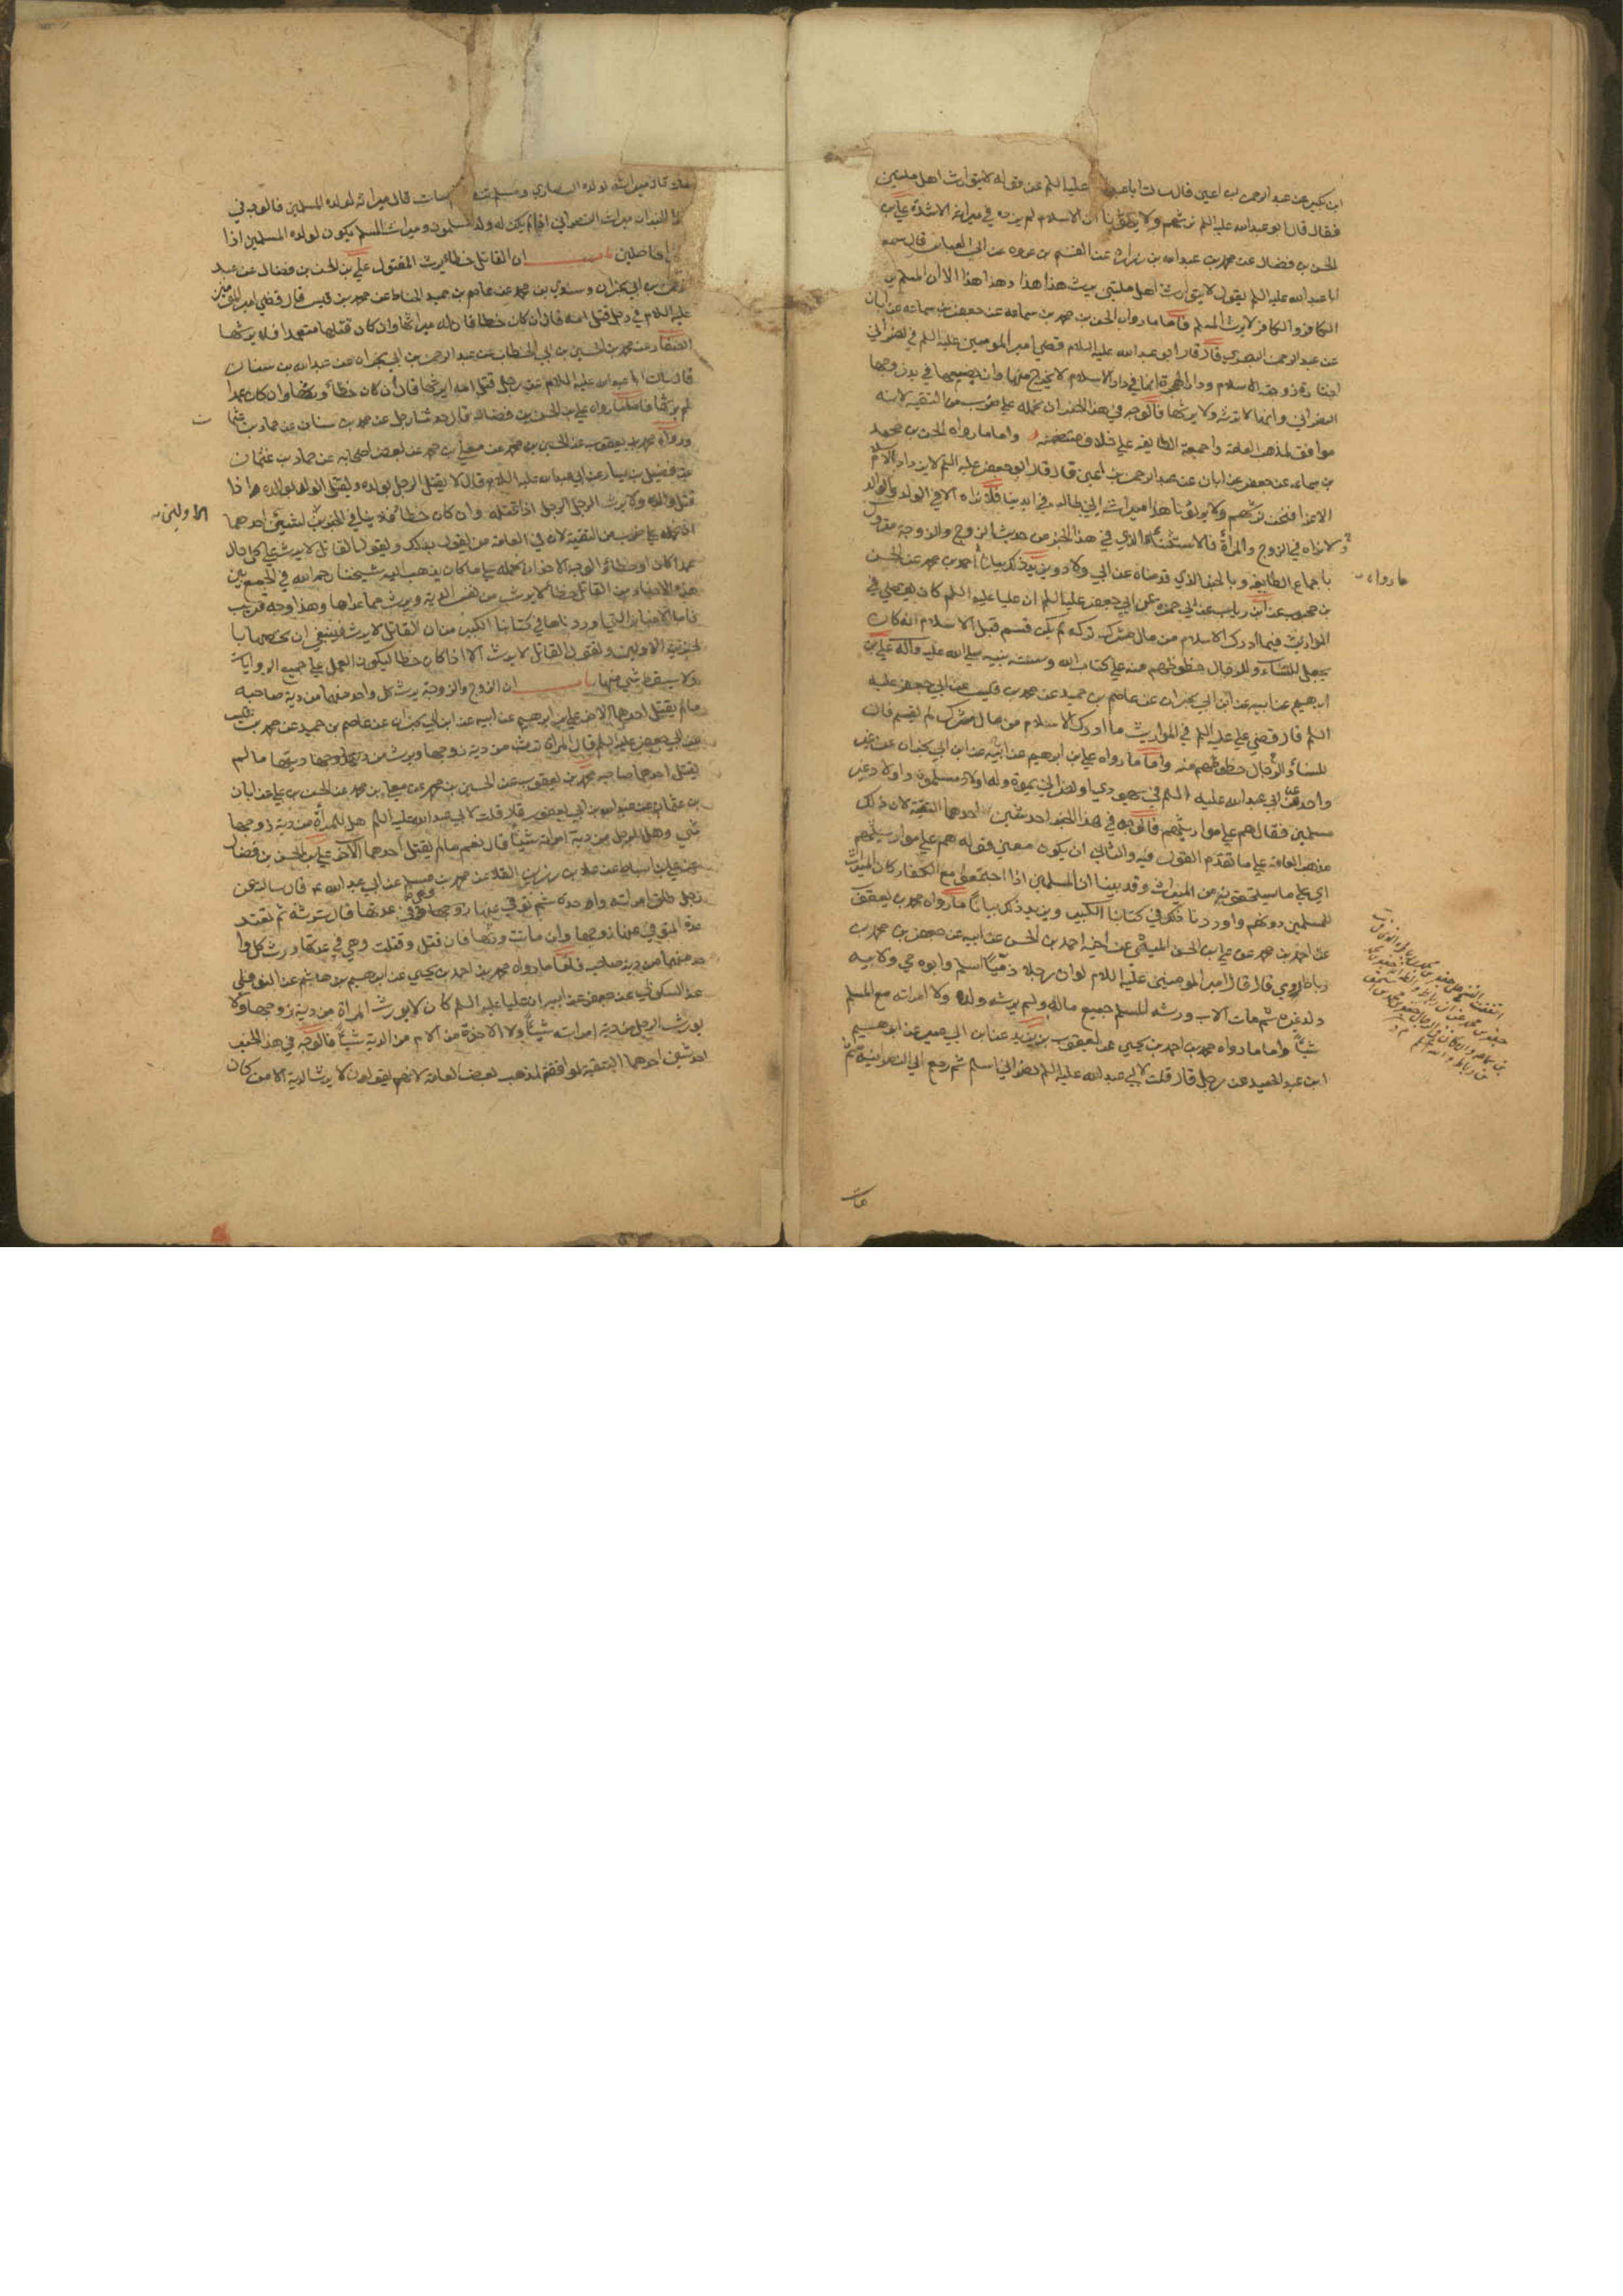 ابن بكير عن عبد الرحمن بن اعين قال سالت ابا عبد الله عليه السلم عن قوله لا يتوارث اهل ملتين
فقال قال ابو عبد الله عليه السلم نرثهم ولا يرثونا ان الاسلام لم يزده في ميراثه الا شدة علي بن
الحسن بن فضال عن محمد بن عبد الله بن زرارة عن القسم بن عروه عن ابي العباس قال سمعت
ابا عبد الله عليه السلم يقول لا يتوارث اهل ملتين يرث هذا هذا وهذا هذا الا ان المسلم يرث
الكافر والكافر لا يرث المسلم فاما ما رواه الحسن بن محمد بن سماعه عن جعفر بن سماعه عن ابان
عن عبد الرحمن البصري قال قال ابو عبد الله عليه السلام قضي امير المومنين عليه السلم في نصراني
اختارت زوجته الاسلام ودار الهجرة انها في دار الاسلام لا يخرج منها وان بضعها في يد زوجها
النصراني وانها لا ترثه ولا يرثها فالوجه في هذا الخبر ان نحمله علي ضرب من التقيه لانه
موافق لمذهب العامه واجمعت الطايفه علي خلاف متضمنه واما ما رواه الحسن بن محمد
بن سماعه عن جعفر عن ابان عن عبد الرحمن بن اعين قال قال ابو جعفر عليه السلم لا يزداد الاسلام
الا عزا فنحن نرثهم ولا يرثونا هذا ميراث ابي طالب في ايدينا فلا نراه الا في الولد والوالد
ولا نراه في الزوج والمراة فالاستثناء الذي في هذا الخبر من حديث الزوج والزوجة متروك
باجماع الطايفه وبالخبر الذي قدمناه عن ابي ولاد ويزيد ذلك بيانا ما رواه احمد بن محمد عن الحسن
بن محبوب عن ابن رياب عن ابي حمزه عن ابي جعفر عليه السلم ان عليا عليه السلم كان يقضي في
المواريث فيما ادرك الاسلام من مال مشرك تركه لم يكن قسم قبل الاسلام انه كان
يجعل للنساء والرجال حظوظهم منه علي كتاب الله وسنة نبيه صلي الله عليه وآله علي بن
ابرهيم عن ابيه عن ابن ابي نجران عن عاصم بن حميد عن محمد بن قيس عن ابي جعفر عليه
السلم قال قضي علي عليه السلم في المواريث ما ادرك الاسلام من مال مشرك لم يقسم فان
للنساء والرجال حظوظهم منه واما ما رواه علي بن ابرهيم عن ابيه عن ابن ابي نجران عن غير
واحد عن ابي عبد الله عليه السلم في يهودي او نصراني يموت وله اولاد مسلمون واولاد غير
مسلمين فقال هم علي مواريثهم فالوجه في هذا الخبر احد شيئين احدهما التقية لان ذلك
مذهب العامه علي ما تقدم القول فيه والثاني ان يكون معني قوله هم علي مواريثهم
اي علي ما يستحقونه من الميراث وقد بينا ان المسلمين اذا اجتمعوا مع الكفار كان الميراث
للمسلمين دونهم واوردنا ذلك في كتابنا الكبير ويزيد ذلك بيانا ما رواه محمد بن يعقوب
عن احمد بن محمد عن علي بن الحسن الميثمي عن اخيه احمد بن الحسن عن ابيه عن جعفر بن محمد بن
رباط روي قال قال امير المومنين عليه السلام لو ان رجلا ذميا اسلم وابوه حي ولابيه
ولد غيره ثم مات الاب ورثه المسلم جميع ماله ولم يرثه ولده ولا امراته مع المسلم
شيئا واما ما رواه محمد بن احمد بن يحيي عن يعقوب بن يزيد عن ابن ابي عمير عن ابرهيم
ابن عبد الحميد عن رجل قال قلت لابي عبد الله عليه السلم نصراني اسلم ثم رجع الي النصرانية ثم
مات
ما رواه
مات قال ميراثه لولده النصاري ومسلم تنصر ثم مات قال ميراثه لولده المسلمين فالوجه في
هذا الخبر ان ميراث النصراني اذا لم يكن له ولد مسلمون وميراث المسلم يكون لولده المسلمين اذا
كانوا حاصلين باب ان القاتل خطا يرث المقتول علي بن الحسن بن فضال عن عبد
الرحمن بن ابي نجران وسندي بن محمد عن عاصم بن حميد الحناط عن محمد بن قيس قال قضي امير المومنين
عليه السلام في رجل قتل امه قال ان كان خطا فان له ميراثها وان كان قتلها متعمدا فلا يرثها
الصفار عن محمد بن الحسين بن ابي الخطاب عن عبد الرحمن بن ابي نجران عن عبد الله بن سنان
قال سالت ابا عبد الله عليه السلام عن رجل قتل امه ايرثها قال ان كان خطأ ورثها وان كان عمدا
لم يرثها فاما ما رواه علي بن الحسن بن فضال قال حدثنا رجل عن محمد بن سنان عن حماد بن عثمان
ورواه محمد بن يعقوب عن الحسين بن محمد عن معلي بن محمد عن بعض اصحابه عن حماد بن عثمان
عن فضيل بن يسار عن ابي عبد الله عليه السلام قال لا يقتل الرجل بولده ويقتل الولد بوالده اذا
قتل والده ولا يرث الرجل الرجل اذا قتله وان كان خطا فلا ينافي الخبرين لشيئين احدهما
الاولين
ان نحمله علي ضرب من التقية لان في العامه من يقول بذلك ويقول القاتل لا يرث علي كل حال
عمدا كان او خطا والوجه الاخر ان نحمله علي ما كان يذهب اليه شيخنا رحمه الله في الجمع بين
هذه الاخبار من القاتل خطا لا يرث من نفس الدية ويرث مما عداها وهذا وجه قريب
فاما الاخبار التي اوردناها في كتابنا الكبير من ان القاتل لا يرث فينبغي ان نخصها با
لخبرين الاولين ونقول القاتل لا يرث الا اذا كان خطا ليكون العمل علي جميع الروايات
ولا يسقط شي منها باب ان الزوج والزوجة يرث كل واحد منهما من دية صاحبه
ما لم يقتل احدهما الاخر علي بن ابرهيم عن ابيه عن ابن ابي نجران عن عاصم بن حميد عن محمد بن قيس
عن ابي جعفر عليه السلم قال المراة ترث من دية زوجها ويرث من ديتها ما لم
يقتل احدهما صاحبه محمد بن يعقوب عن الحسين بن محمد عن معلي بن محمد عن الحسن بن علي عن ابان
بن عثمان عن عبد الله بن ابي يعفور قال قلت لابي عبد الله عليه السلم هل للمرأة من دية زوجها
شي وهل للرجل من دية امراته شيئا قال نعم ما لم يقتل احدهما الآخر علي بن الحسن بن فضال
عن علي بن اسباط عن علا بن رزين القلا عن محمد بن مسلم عن ابي عبد الله ع قال سالته عن
رجل طلق امراته واحدة ثم توفي عنها زوجها وهي في عدتها قال ترثه ثم تعتد
عدة المتوفي عنها زوجها وان ماتت ورثها فان قتل وقتلت وهي في عدتها ورث كل وا
حد منهما من دية صاحبه فاما ما رواه محمد بن احمد بن يحيي عن ابرهيم بن هاشم عن النوفلي
عن السكوني عن جعفر عن ابيه ان عليا عليه السلم كان لا يورث المراة من دية زوجها ولا
يورث الرجل من دية امراته شيئا ولا الاخوة من الام من الدية شيئا فالوجه في هذا الخبر
احد شيئين احدهما التقية لموافقة لمذهب بعض العامه لانهم يقولون لا يرث الدية الا من كان